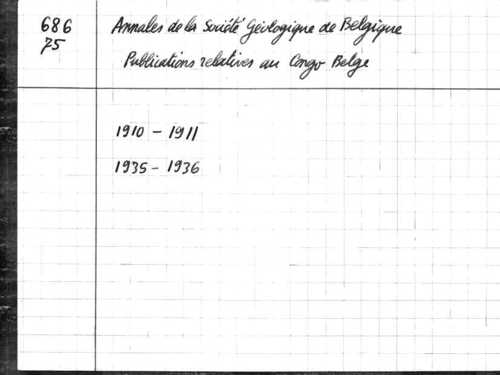 686 Annales de la Société Géologique de Belgique
75 Publications relatives au Congo Belge
1910 - 1911
1935 - 1936